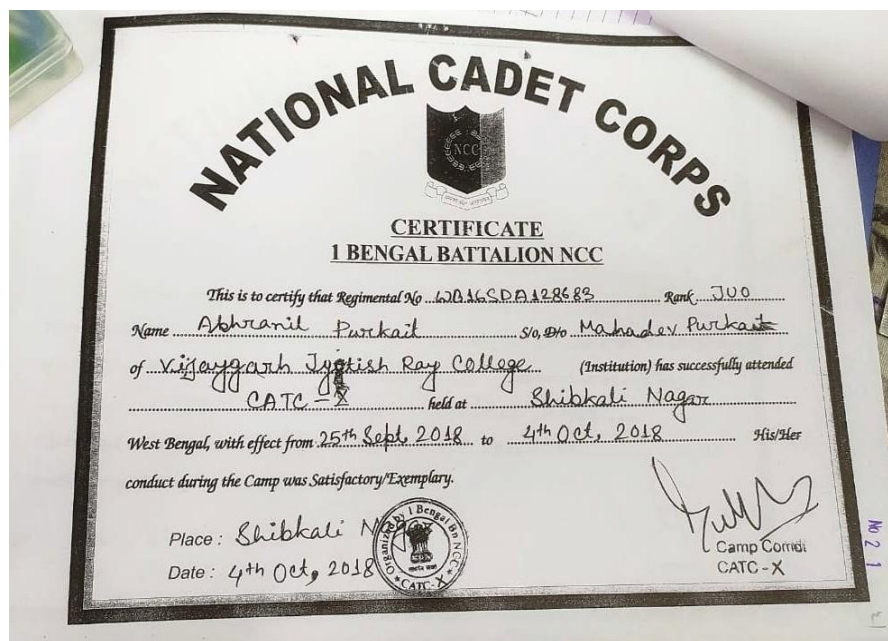 NATIONAL CADET CORPS
NCC
CERTIFICATE
1 BENGAL BATTALION NCC
This is to certify that Regimental No WB16SDA128683 Rank JUO
Name Abhranil Purkait S/o, D/o Mahadev Purkait
of Vijaygarh Jyotish Ray College (Institution) has successfully attended
CATC-X held at Shibkali Nagar
West Bengal, with effect from 25th Sept, 2018 to 4th Oct, 2018 His/Her
conduct during the Camp was Satisfactory/Exemplary.
Place : Shibkali Nagar
Date : 4th Oct, 2018
Organized by 1 Bengal Bn NCC
CATC-X
Camp Comdt
CATC - X